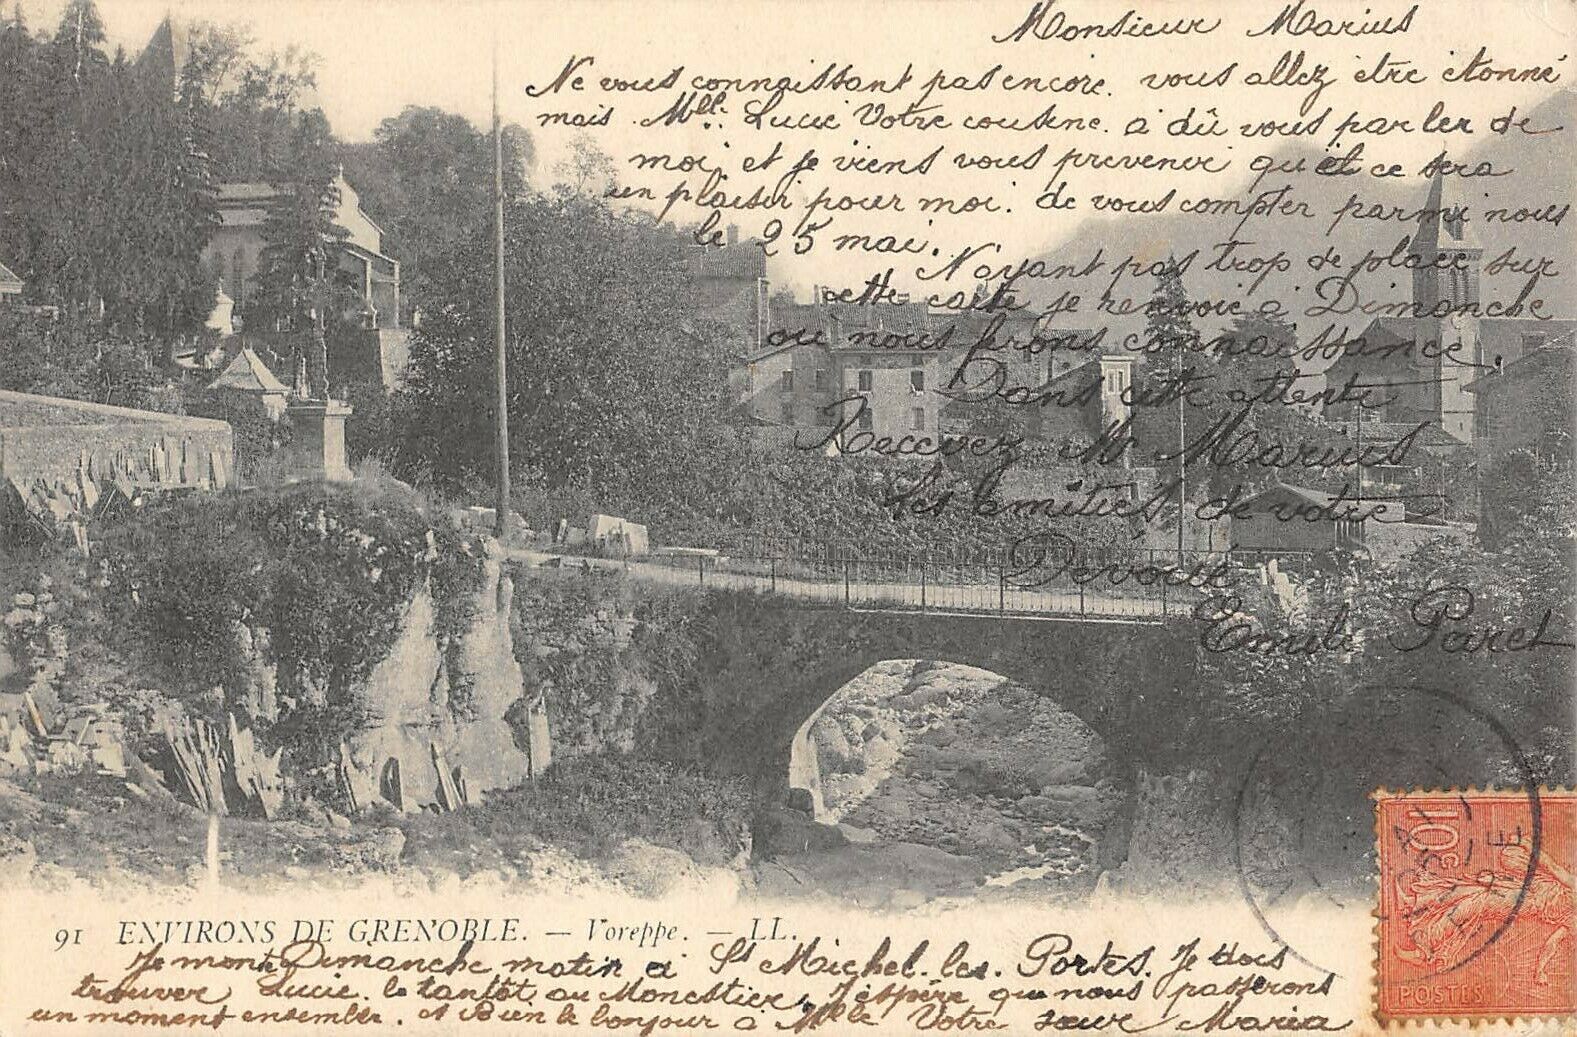 Monsieur Marius
Ne vous connaissant pas encore. vous allez être étonné
mais Mlle. Lucie Votre cousene. a dû vous parler de
moi, et je viens vous prevenir qu'et ce sera
un plaisir pour moi. de vous compter parmi nous
le 25 mai.
N'ayant pas trop de place sur
cette carte je renvoie à Dimanche
ou nous ferons connaissance.
Dans cette attente
Recevez Mr Marius
Les Emitiés de votre
Devoué
Emile Paret
10c
POSTES
91 ENVIRONS DE GRENOBLE. — Voreppe. — LL.
Je monte Dimanche matin a St Michel. les. Portes. Je dois
trouver Lucie. le tantôt au Monestier, J'éspère que nous passerons
un moment ensemble. et bien le bonjour à Mlle Votre sœur Maria